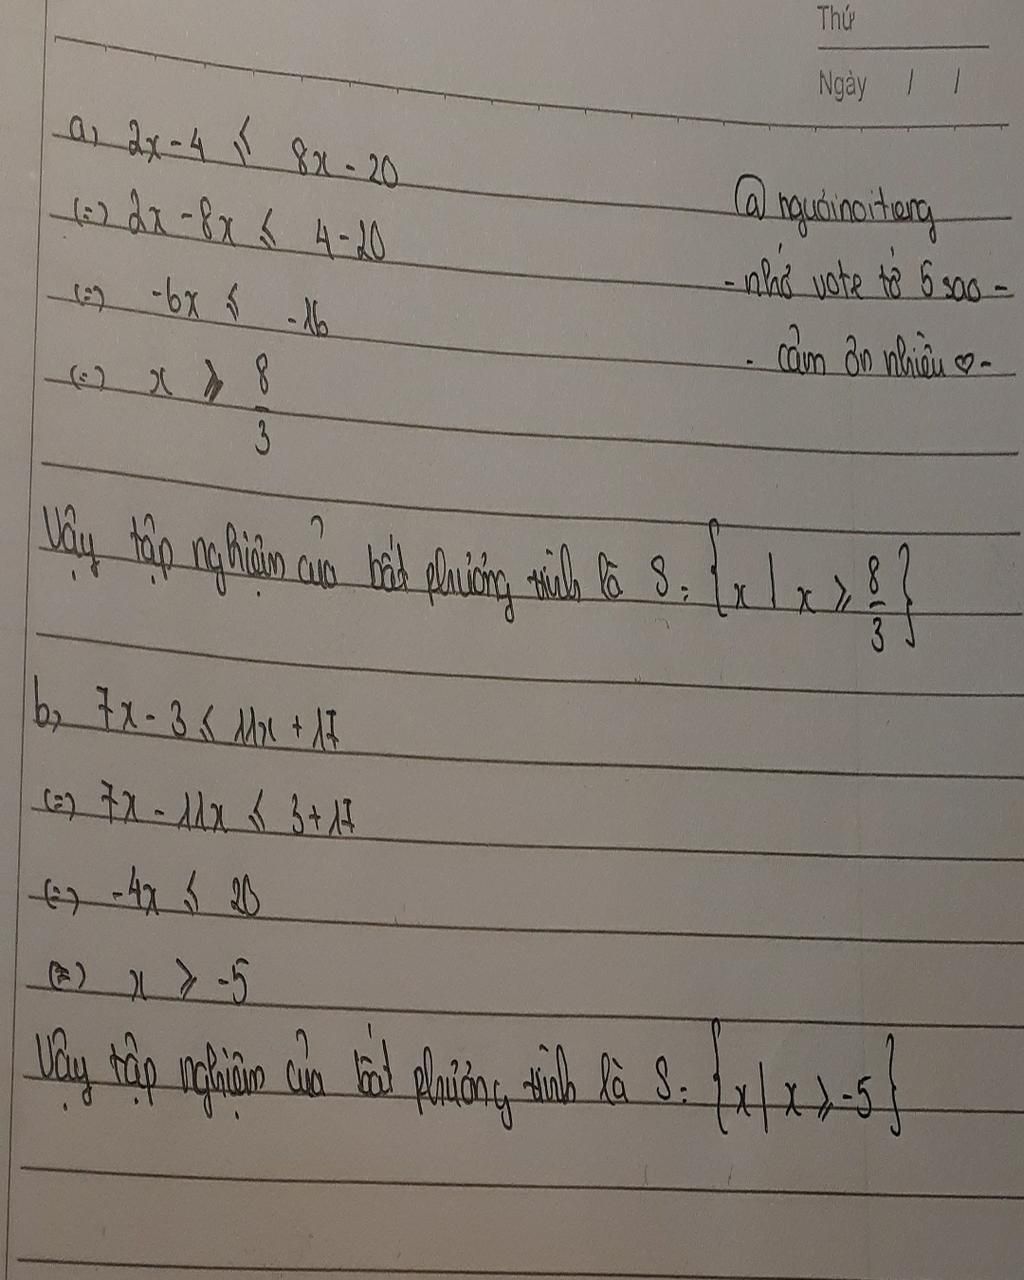 Thứ
Ngày / /
a, 2x - 4 ≤ 8x - 20
(=) 2x - 8x ≤ 4 - 20
@nguoinoitieng
(=) -6x ≤ -16
- nhớ vote tớ 5 sao -
(=) x ≥ 8/3
- cảm ơn nhiều ♡ -
Vậy tập nghiệm của bất phương trình là S = {x | x ≥ 8/3}
b, 7x - 3 ≤ 11x + 17
(=) 7x - 11x ≤ 3 + 17
(=) -4x ≤ 20
(=) x ≥ -5
Vậy tập nghiệm của bất phương trình là S = {x | x ≥ -5}